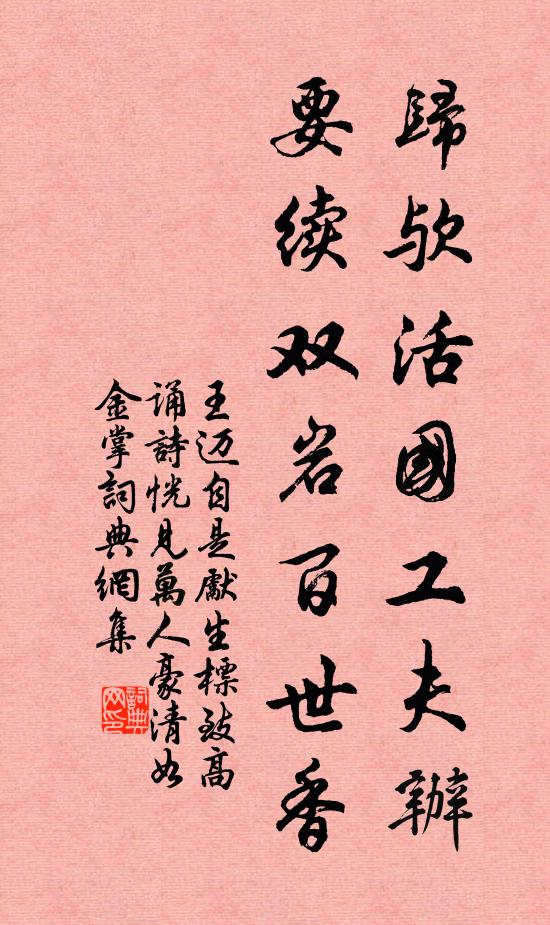 歸欤活國工夫辦
要续双岩百世香
王迈自是獻生標致高
誦詩恍見萬人豪清如
金掌詞典網集
詞典網印